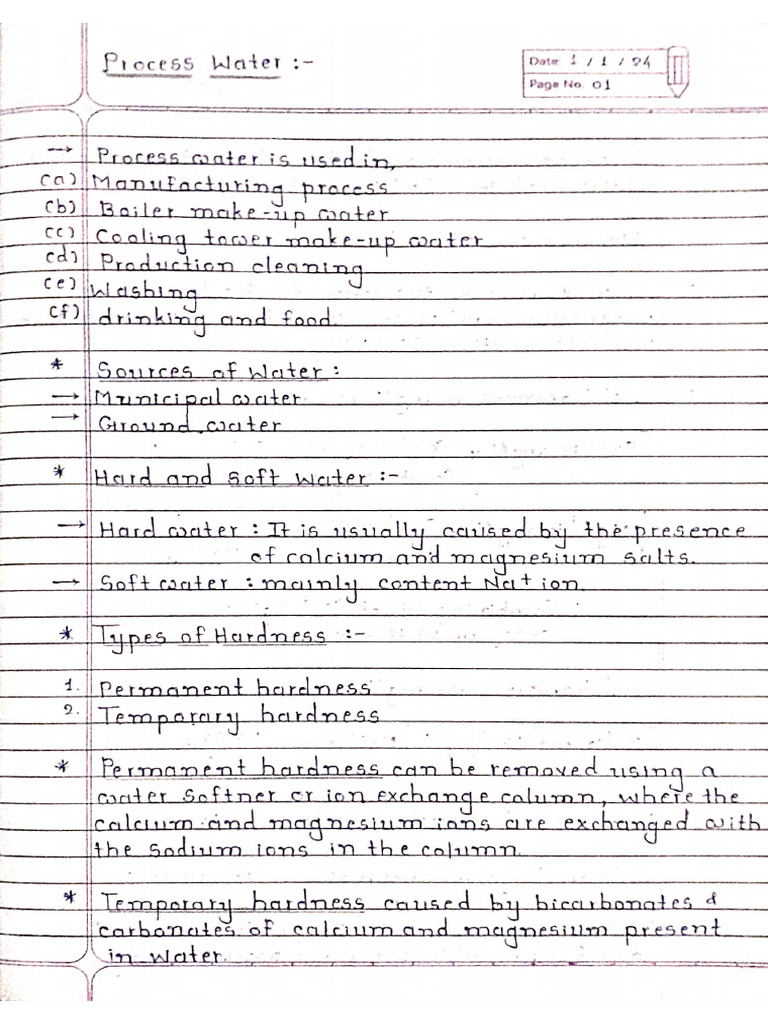 Process Water :-
Date 1 / 1 / 24
Page No. 01
→ Process water is used in,
(a) Manufacturing process
(b) Boiler make-up water
(c) Cooling tower make-up water
(d) Production cleaning
(e) Washing
(f) drinking and food.
* Sources of Water :
→ Municipal water
→ Ground water
* Hard and Soft Water :-
→ Hard water : It is usually caused by the presence
of calcium and magnesium salts.
→ Soft water : mainly content Na+ ion.
* Types of Hardness :-
1. Permanent hardness
2. Temporary hardness
* Permanent hardness can be removed using a
water softner or ion exchange column, where the
calcium and magnesium ions are exchanged with
the sodium ions in the column.
* Temporary hardness caused by bicarbonates &
carbonates of calcium and magnesium present
in water.